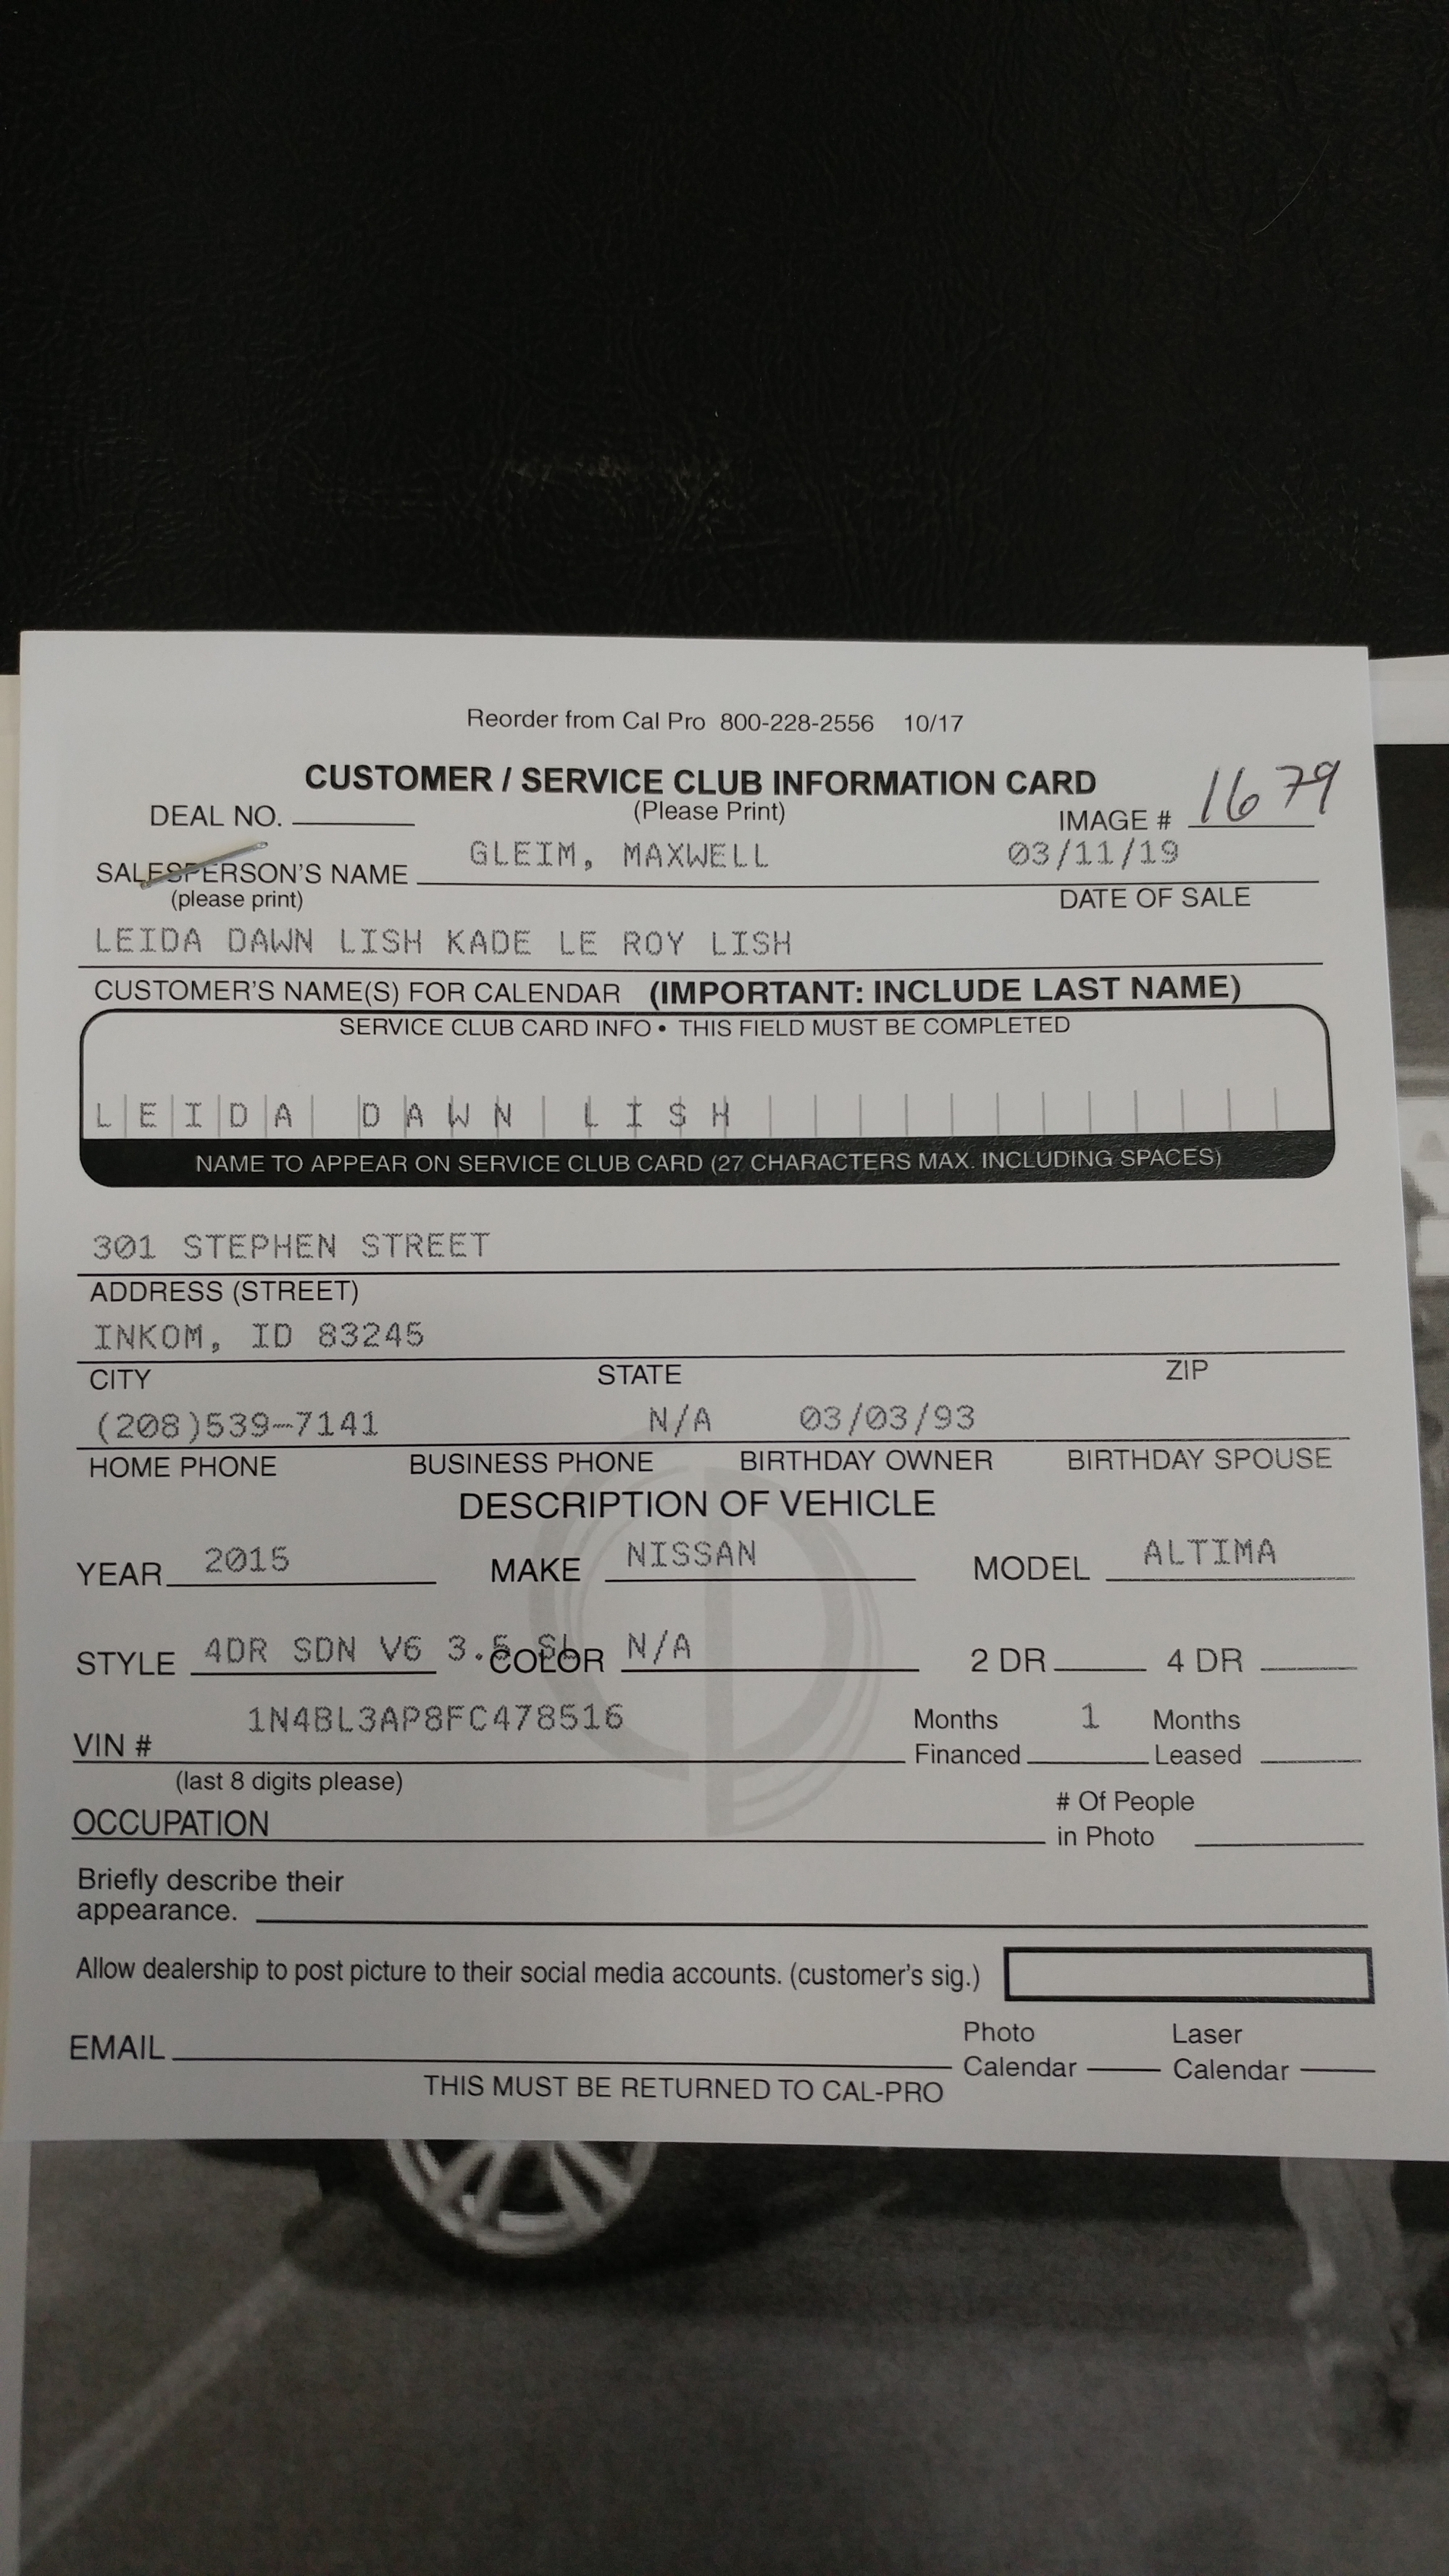 Reorder from Cal Pro 800-228-2556 10/17
CUSTOMER / SERVICE CLUB INFORMATION CARD
DEAL NO. (Please Print) IMAGE # 1679
SALESPERSON'S NAME GLEIM, MAXWELL 03/11/19
(please print) DATE OF SALE
LEIDA DAWN LISH KADE LE ROY LISH
CUSTOMER'S NAME(S) FOR CALENDAR (IMPORTANT: INCLUDE LAST NAME)
SERVICE CLUB CARD INFO • THIS FIELD MUST BE COMPLETED
LEIDA DAWN LISH
NAME TO APPEAR ON SERVICE CLUB CARD (27 CHARACTERS MAX. INCLUDING SPACES)
301 STEPHEN STREET
ADDRESS (STREET)
INKOM, ID 83245
CITY STATE ZIP
(208)539-7141 N/A 03/03/93
HOME PHONE BUSINESS PHONE BIRTHDAY OWNER BIRTHDAY SPOUSE
DESCRIPTION OF VEHICLE
YEAR 2015 MAKE NISSAN MODEL ALTIMA
STYLE 4DR SDN V6 3.5 SL COLOR N/A 2 DR 4 DR
VIN # 1N4BL3AP8FC478516 Months Financed 1 Months Leased
(last 8 digits please)
OCCUPATION # Of People in Photo
Briefly describe their
appearance.
Allow dealership to post picture to their social media accounts. (customer's sig.)
EMAIL Photo Calendar Laser Calendar
THIS MUST BE RETURNED TO CAL-PRO